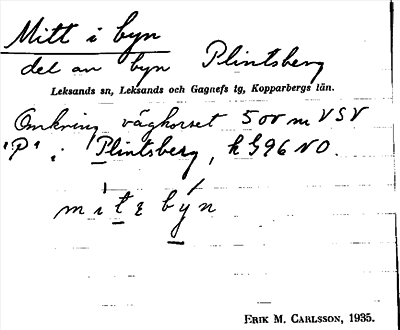 Mitt i byn
del av byn Plintsberg
Leksands sn, Leksands och Gagnefs tg, Kopparbergs län.
Omkring vägkorset 500 m VSV
"P" i Plintsberg, k G96 NO.
mitε byn
ERIK M. CARLSSON, 1935.